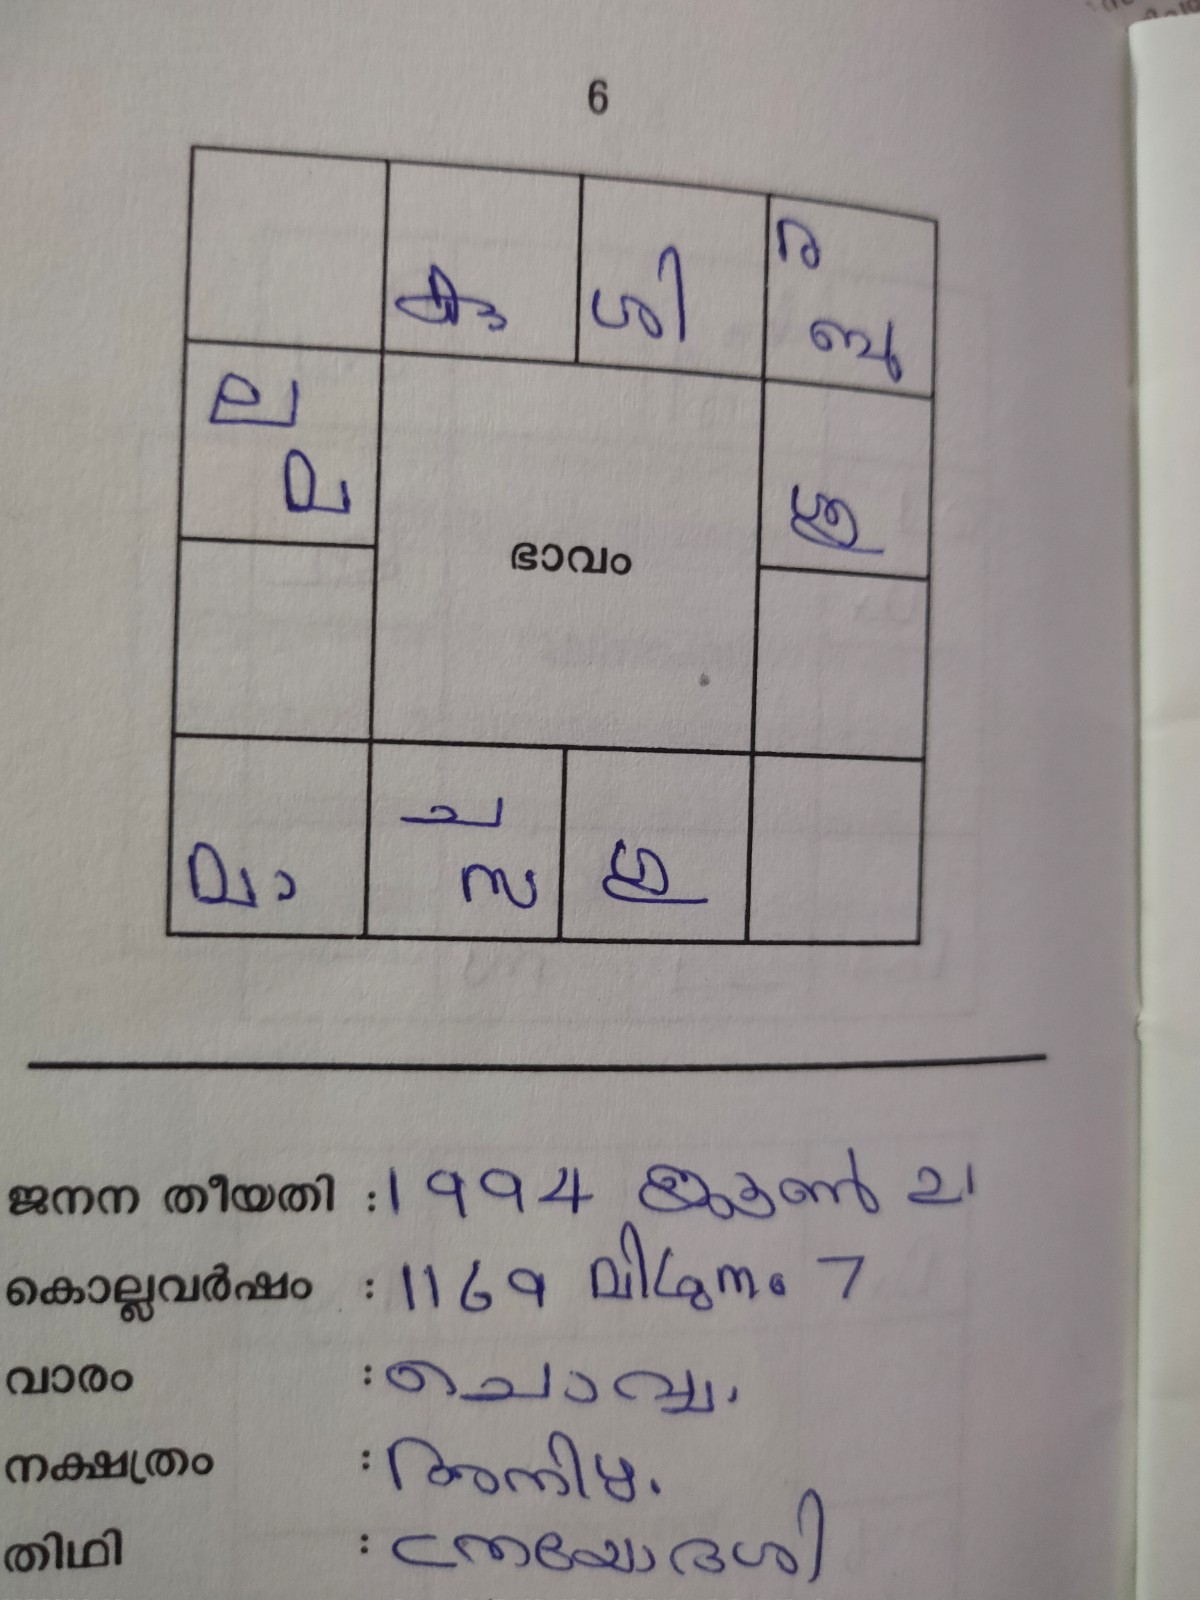 6
ര
ശി
ബു
ല
പ
ഗു
ഭാവം
ച
സ
മാ
ഗു
ജനന തീയതി : 1994 ജൂൺ 21
കൊല്ലവർഷം : 1169 മിഥുനം 7
വാരം : ചൊവ്വ.
നക്ഷത്രം : അനിഴം.
തിഥി : ത്രയോദശി